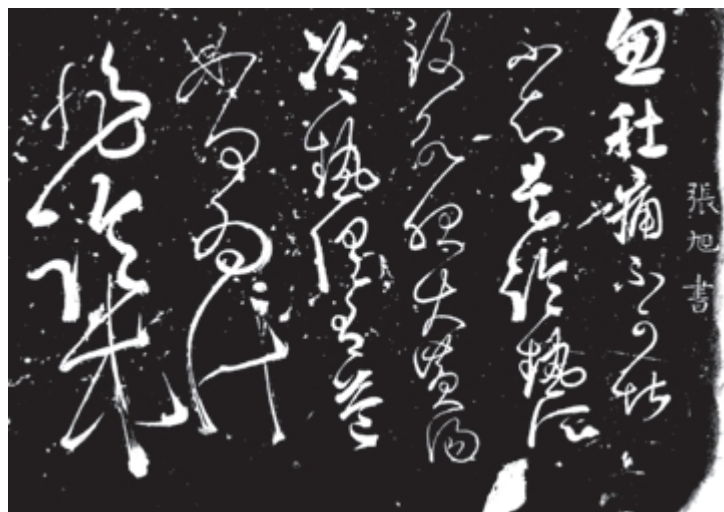 張旭書
忽肚痛不可堪
不知是冷熱所
致欲服大黃湯
冷熱俱有益
如何為計